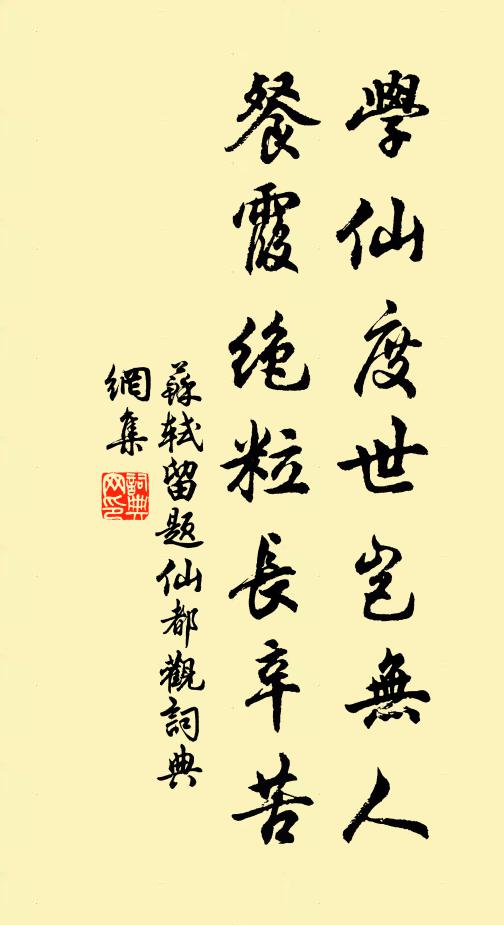 學仙度世豈無人
餐霞絕粒長辛苦
蘇軾留題仙都觀詞典
網集
詞典
网印